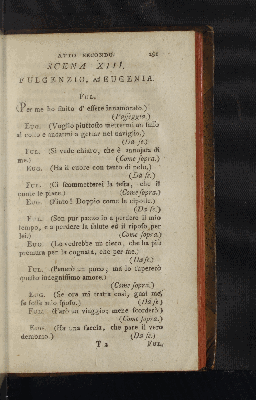 ATTO SECONDO. 291
SCENA XIII.
FULGENZIO, ed EUGENIA.
FUL.
(Per me ho finito d' essere innamorato.)
(Passeggia.)
EUG. (Voglio piuttosto mettermi un sasso
al collo e andarmi a gettar nel naviglio.)
(Da se.)
FUL. (Si vede chiaro, che è annojata di
me.) (Come sopra.)
EUG. (Ha il cuore con tanto di pelo.)
(Da se.)
FUL. (Ci scommetterei la testa, che il
conte le preme.) (Come sopra.)
EUG. (Finto! Doppio come le cipolle.)
(Da se.)
FUL. (Son pur pazzo io a perdere il mio
tempo, e a perdere la salute ed il riposo per
lei.) (Come sopra.)
EUG. (Lo vedrebbe un cieco, che ha più
premura per la cognata, che per me.)
(Da se.)
FUL. (Penerò un poco, ma lo supererò
questo indegnissimo amore.)
(Come sopra.)
EUG. (Se ora mi tratta così, guai me,
se fosse mio sposo.) (Da se.)
FUL. (Farò un viaggio; me ne scorderò.)
(Come sopra.)
EUG. (Ha una faccia, che pare il vero
demonio.) (Da se.)
T 2 FUL.